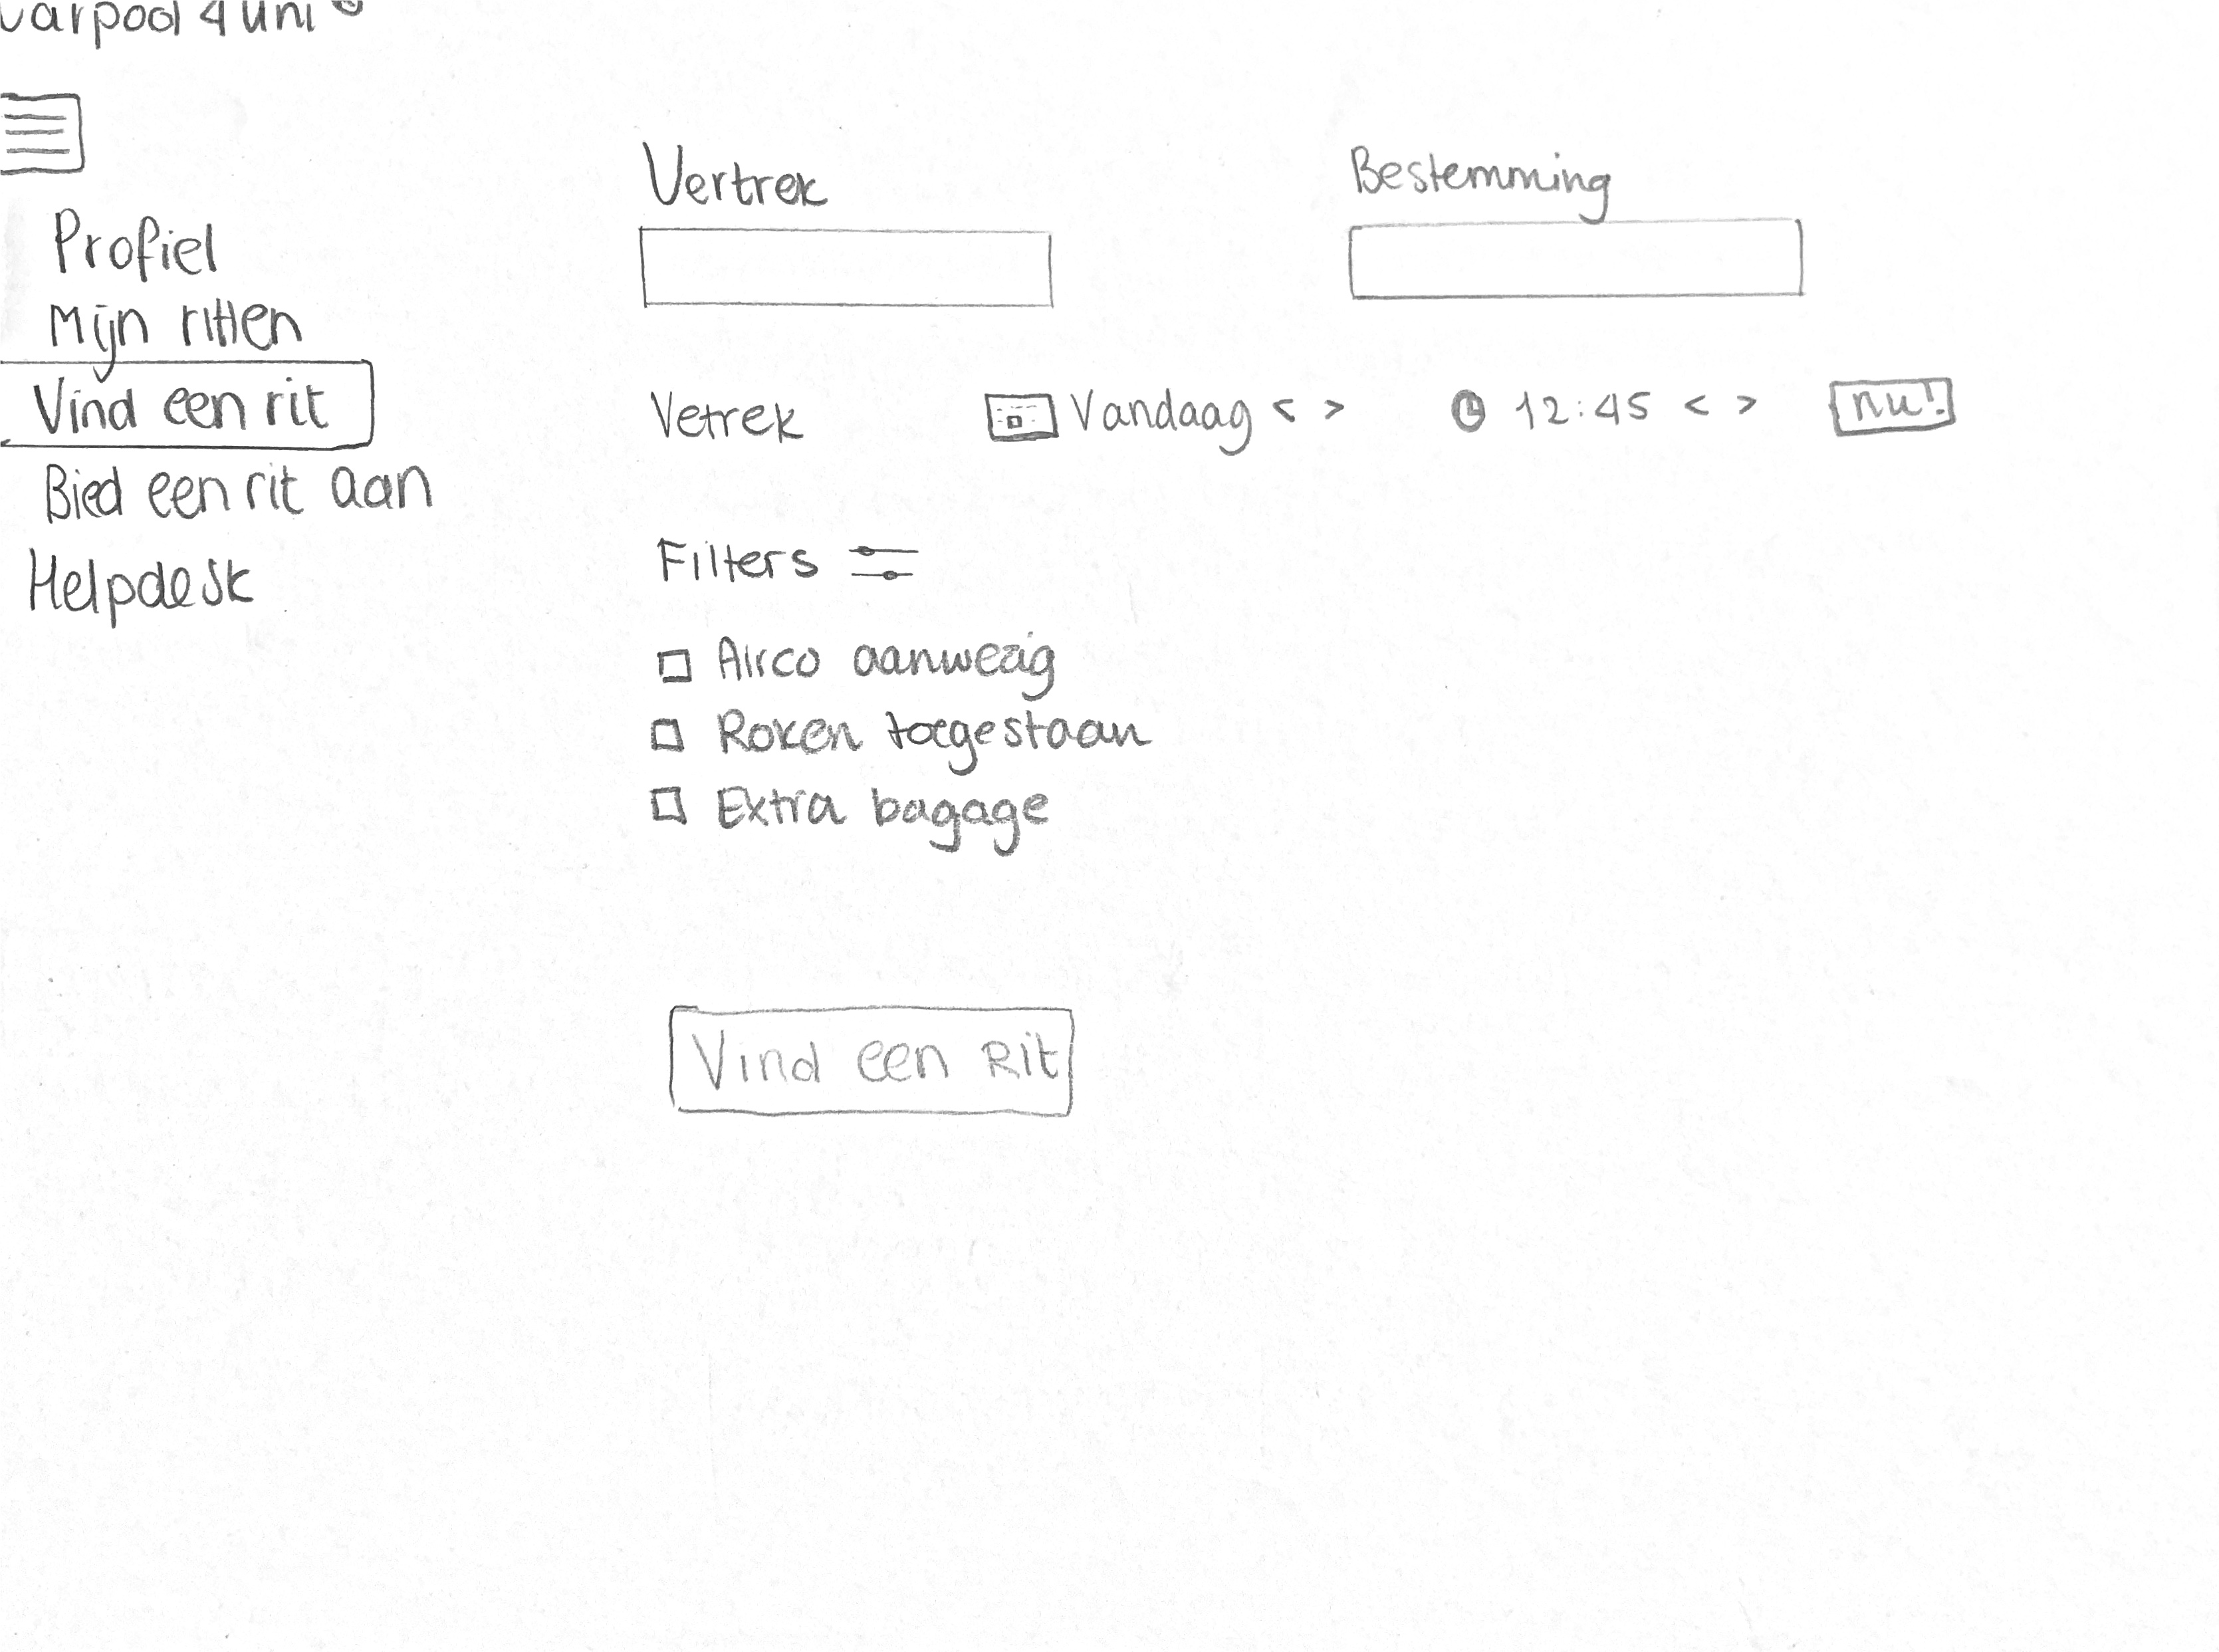 Carpool 4 uni
Profiel
Mijn ritten
Vind een rit
Bied een rit aan
Helpdesk
Vertrek
Bestemming
Vetrek
Vandaag < >
12:45 < >
nu!
Filters
Airco aanwezig
Roken toegestaan
Extra bagage
Vind een Rit